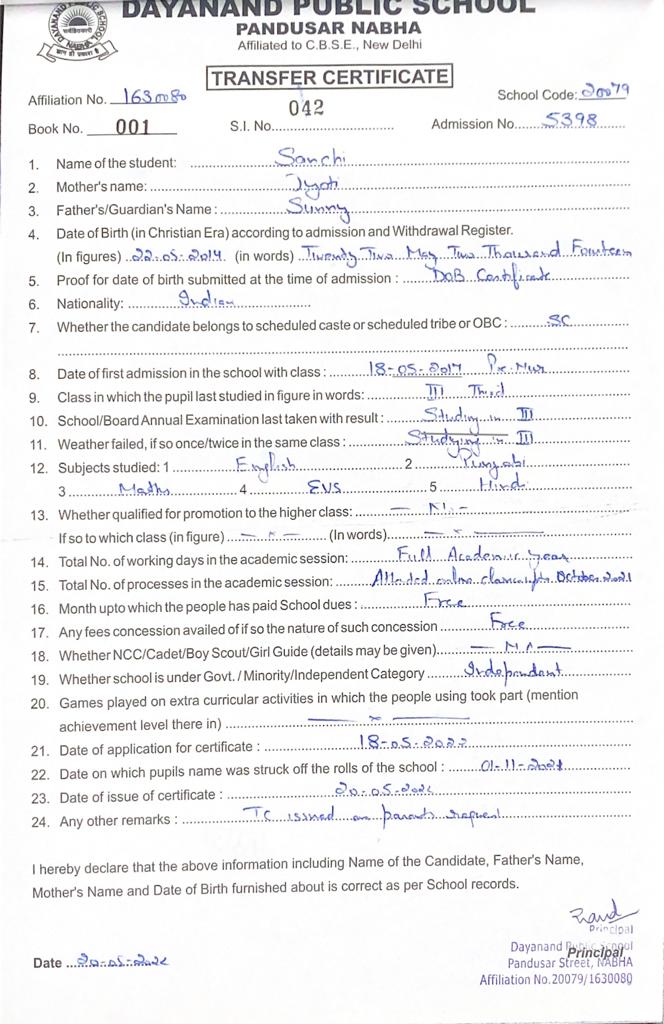 DAYANAND PUBLIC SCHOOL
PANDUSAR NABHA
Affiliated to C.B.S.E., New Delhi
TRANSFER CERTIFICATE
Affiliation No. 1630080 School Code: 20079
Book No. 001 S.I. No. 042 Admission No. 5398
1. Name of the student: Sanchi
2. Mother's name: Jyoti
3. Father's/Guardian's Name : Sunny
4. Date of Birth (in Christian Era) according to admission and Withdrawal Register.
(In figures) 22-05-2014 (in words) Twenty Two May Two Thousand Fourteen
5. Proof for date of birth submitted at the time of admission : DOB Certificate
6. Nationality: Indian
7. Whether the candidate belongs to scheduled caste or scheduled tribe or OBC : SC
8. Date of first admission in the school with class : 18-05-2017 Pre. Nur
9. Class in which the pupil last studied in figure in words: III Third
10. School/Board Annual Examination last taken with result : Studying in III
11. Weather failed, if so once/twice in the same class : Studying in III
12. Subjects studied: 1 English 2 Punjabi
3 Maths 4 EVS 5 Hindi
13. Whether qualified for promotion to the higher class:
If so to which class (in figure) — x — (In words) — x —
14. Total No. of working days in the academic session: Full Academic year
15. Total No. of processes in the academic session: Attended online classes upto October 2021
16. Month upto which the people has paid School dues : Free
17. Any fees concession availed of if so the nature of such concession Free
18. Whether NCC/Cadet/Boy Scout/Girl Guide (details may be given) — NA —
19. Whether school is under Govt. / Minority/Independent Category Independent
20. Games played on extra curricular activities in which the people using took part (mention
achievement level there in) — x —
21. Date of application for certificate : 18-05-2022
22. Date on which pupils name was struck off the rolls of the school : 01-11-2021
23. Date of issue of certificate : 20-05-2022
24. Any other remarks : TC issued on parents request
I hereby declare that the above information including Name of the Candidate, Father's Name,
Mother's Name and Date of Birth furnished about is correct as per School records.
Principal
Dayanand Public School
Principal
Date 20-05-2022 Pandusar Street, NABHA
Affiliation No.20079/1630080